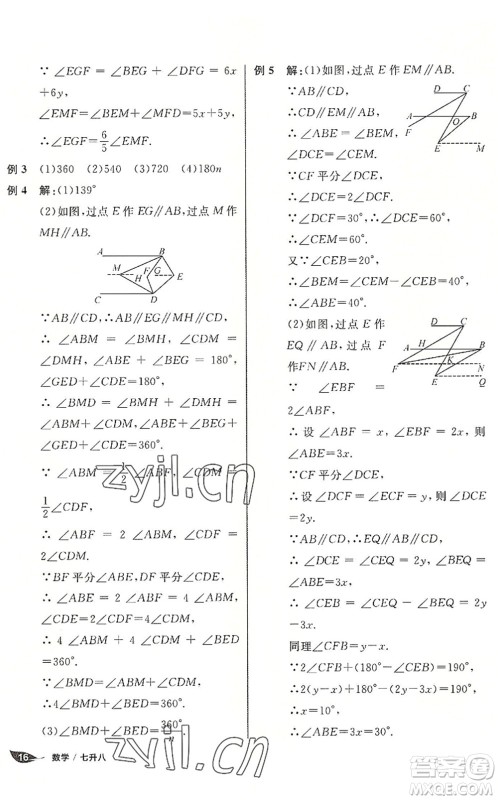 ∵∠EGF=∠BEG+∠DFG=6x
+6y,
∠EMF=∠BEM+∠MFD=5x+5y,
∴∠EGF=6/5∠EMF.
例3 (1)360 (2)540 (3)720 (4)180n
例4 解:(1)139°
(2)如图,过点E作EG∥AB,过点M作
MH∥AB.
A B
M H F G E
C D
∵AB∥CD,∴AB∥EG∥MH∥CD,
∴∠ABM=∠BMH, ∠CDM=
∠DMH, ∠ABE+∠BEG=180°,
∠GED+∠CDE=180°,
∴∠BMD=∠ABM+∠CDM,
∴∠CDM, ∠ABE+∠BEG+
∠GED+∠CDE=360°.
∵∠ABM=1/2∠ABF, ∠CDM=
1/2∠CDF,
∴∠ABF=2∠ABM, ∠CDF=
2∠CDM.
∵BF平分∠ABE,DF平分∠CDE,
∴∠ABE=4∠ABM,∠CDE=
4∠CDM,
∴4∠ABM+4∠CDM+∠BED=
360°,
∵∠BMD=∠ABM+∠CDM,
∴4∠BMD+∠BED=360°.
(3)∠BMD+∠BED/=360°/n
16 数学/七升八
例5 解:(1)如图,过点E作EM∥AB.
∵AB∥CD,
∴CD∥EM∥AB,
∴∠ABE=∠BEM,
∠DCE=∠CEM.
D C
A O B
E M
∵CF平分∠DCE,
∴∠DCE=2∠DCF.
∵∠DCF=30°,
∴∠DCE=60°,
∴∠CEM=60°.
又∵∠CEB=20°,
∴∠BEM=∠CEM-∠CEB=40°,
∴∠ABE=40°.
(2)如图,过点E作
EQ∥AB,过点F
作FN∥AB.
D C
A H B
F K N
E Q
∵∠EBF=
2∠ABF,
∴设∠ABF=x,∠EBF=2x,则
∠ABE=3x.
∵CF平分∠DCE,
∴设∠DCF=∠ECF=y,则∠DCE
=2y.
∵AB∥CD,∴EQ∥AB∥CD,
∴∠DCE=∠CEQ=2y,∠BEQ=
∠ABE=3x,
∴∠CEB=∠CEQ-∠BEQ=2y-
3x.
同理∠CFB=y-x.
∵2∠CFB+(180°-∠CEB)=190°,
∴2(y-x)+180°-(2y-3x)=190°,
∴x=10°,
∴∠ABE=3x=30°.
zyjl.cn
zyjl.cn
答案圈